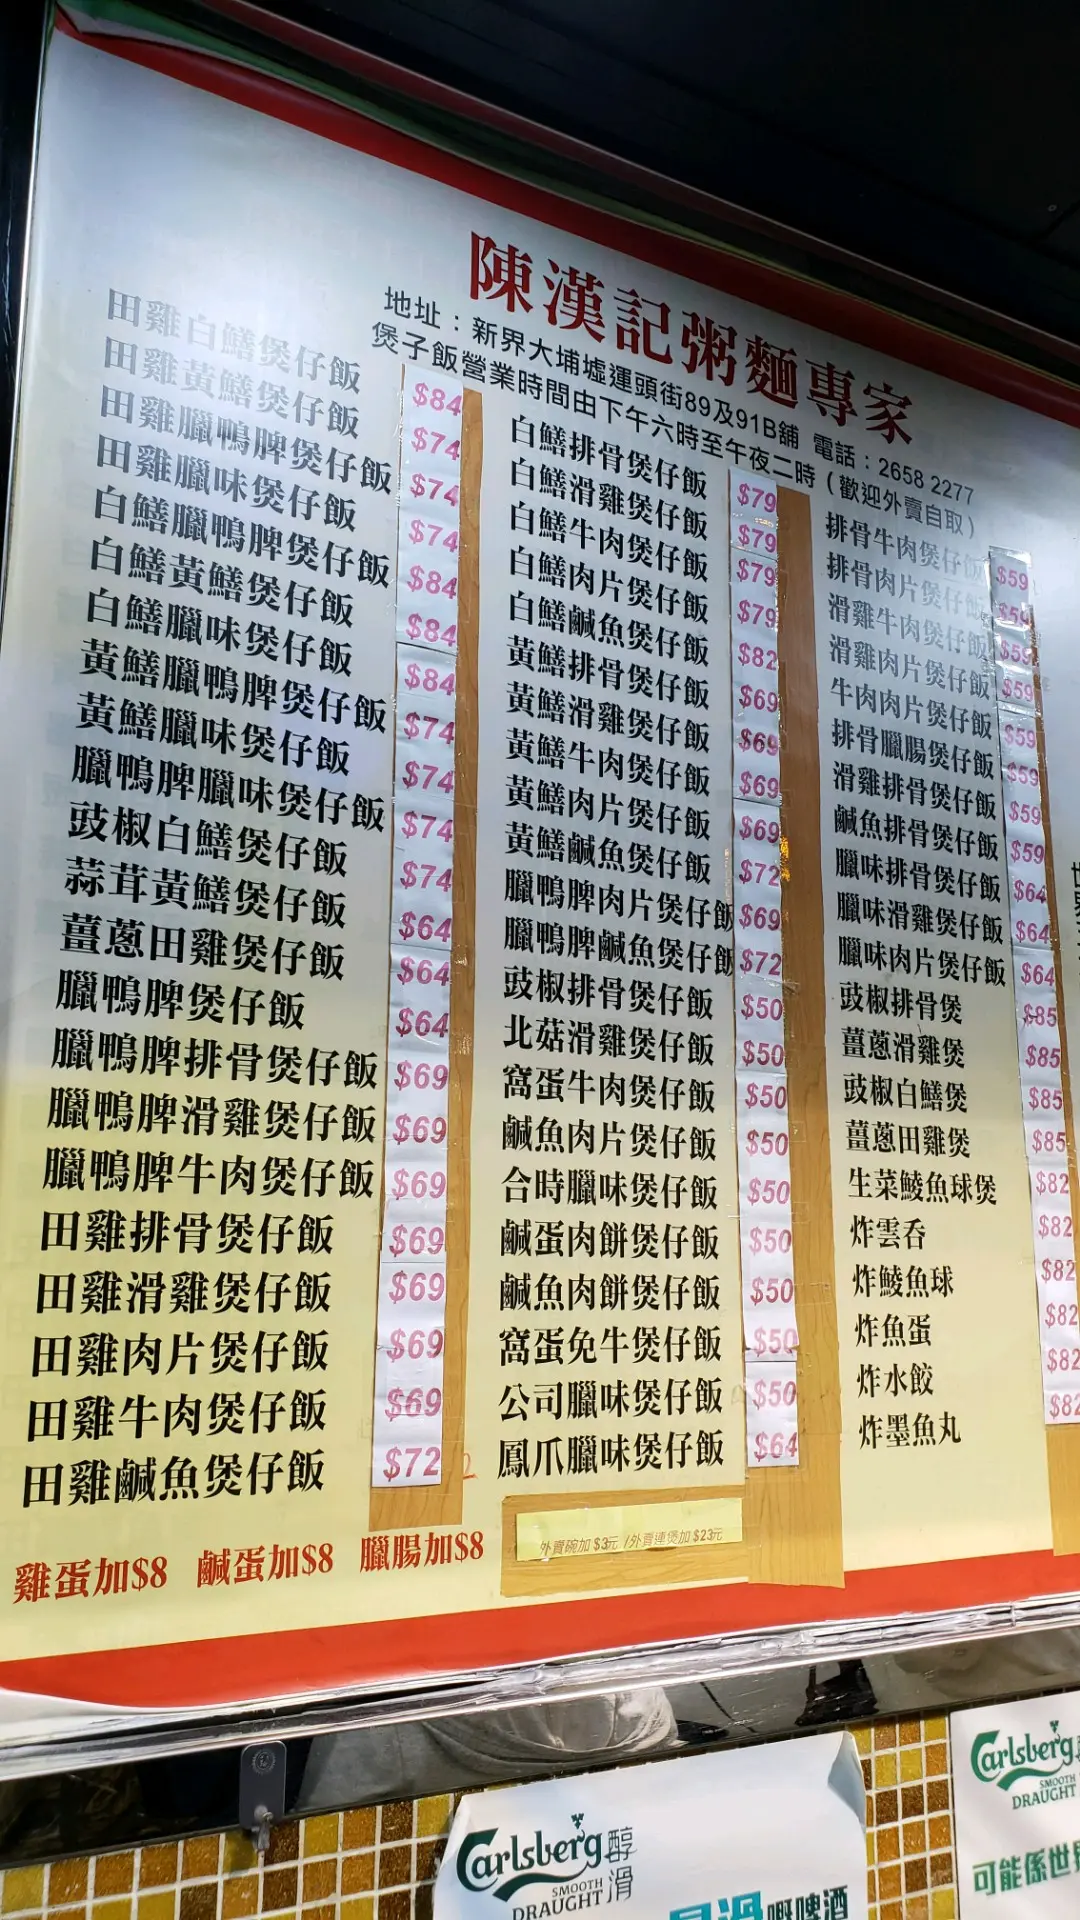 陳漢記粥麵專家
地址：新界大埔墟運頭街89及91B舖 電話：2658 2277
煲子飯營業時間由下午六時至午夜二時（歡迎外賣自取）
田雞白鱔煲仔飯 $84
田雞黃鱔煲仔飯 $74
田雞臘鴨脾煲仔飯 $74
田雞臘味煲仔飯 $74
白鱔臘鴨脾煲仔飯 $84
白鱔黃鱔煲仔飯 $84
白鱔臘味煲仔飯 $84
黃鱔臘鴨脾煲仔飯 $74
黃鱔臘味煲仔飯 $74
臘鴨脾臘味煲仔飯 $74
豉椒白鱔煲仔飯 $74
蒜茸黃鱔煲仔飯 $64
薑蔥田雞煲仔飯 $64
臘鴨脾煲仔飯 $64
臘鴨脾排骨煲仔飯 $69
臘鴨脾滑雞煲仔飯 $69
臘鴨脾牛肉煲仔飯 $69
田雞排骨煲仔飯 $69
田雞滑雞煲仔飯 $69
田雞肉片煲仔飯 $69
田雞牛肉煲仔飯 $69
田雞鹹魚煲仔飯 $72
雞蛋加$8 鹹蛋加$8 臘腸加$8
白鱔排骨煲仔飯 $79
白鱔滑雞煲仔飯 $79
白鱔牛肉煲仔飯 $79
白鱔肉片煲仔飯 $79
白鱔鹹魚煲仔飯 $82
黃鱔排骨煲仔飯 $69
黃鱔滑雞煲仔飯 $69
黃鱔牛肉煲仔飯 $69
黃鱔肉片煲仔飯 $69
黃鱔鹹魚煲仔飯 $72
臘鴨脾肉片煲仔飯 $69
臘鴨脾鹹魚煲仔飯 $72
豉椒排骨煲仔飯 $50
北菇滑雞煲仔飯 $50
窩蛋牛肉煲仔飯 $50
鹹魚肉片煲仔飯 $50
合時臘味煲仔飯 $50
鹹蛋肉餅煲仔飯 $50
鹹魚肉餅煲仔飯 $50
窩蛋免牛煲仔飯 $50
公司臘味煲仔飯 $50
鳳爪臘味煲仔飯 $64
外賣碗加 $3元 /外賣連煲加 $23元
排骨牛肉煲仔飯 $59
排骨肉片煲仔飯 $59
滑雞牛肉煲仔飯 $59
滑雞肉片煲仔飯 $59
牛肉肉片煲仔飯 $59
排骨臘腸煲仔飯 $59
滑雞排骨煲仔飯 $59
鹹魚排骨煲仔飯 $59
臘味排骨煲仔飯 $64
臘味滑雞煲仔飯 $64
臘味肉片煲仔飯 $64
豉椒排骨煲 $85
薑蔥滑雞煲 $85
豉椒白鱔煲 $85
薑蔥田雞煲 $85
生菜鯪魚球煲 $82
炸雲吞 $82
炸鯪魚球 $82
炸魚蛋 $82
炸水餃 $82
炸墨魚丸 $82
Carlsberg 醇滑
SMOOTH
DRAUGHT
嘅啤酒
Carlsberg
SMOOTH
DRAUGHT
可能係世